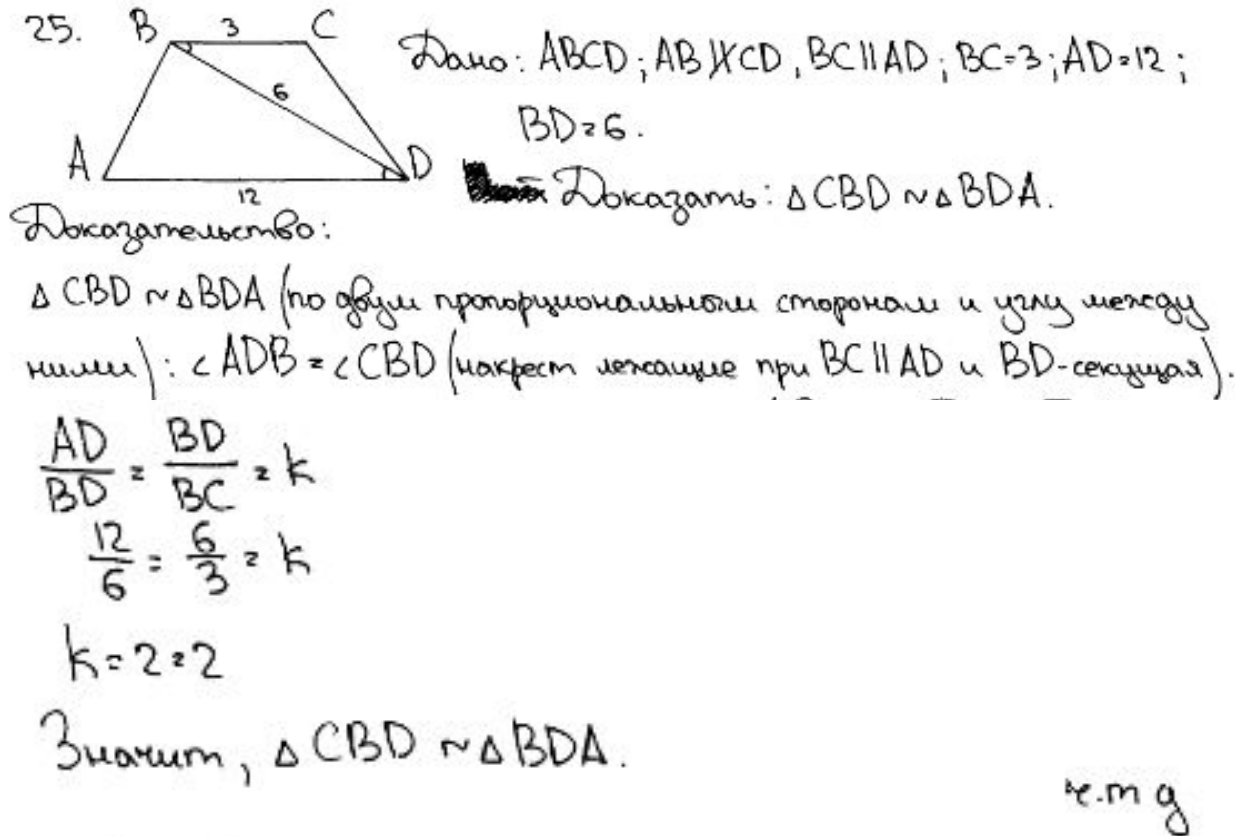 25.
B 3 C
6
A D
12
Дано: ABCD; AB ∦ CD, BC II AD; BC=3; AD=12;
BD=6.
Доказать: △ CBD ~ △ BDA.
Доказательство:
△ CBD ~ △ BDA (по двум пропорциональным сторонам и углу между
ними): ∠ ADB = ∠ CBD (накрест лежащие при BC II AD и BD-секущая).
AD/BD = BD/BC = k
12/6 = 6/3 = k
k=2=2
Значит, △ CBD ~ △ BDA.
ч.т д